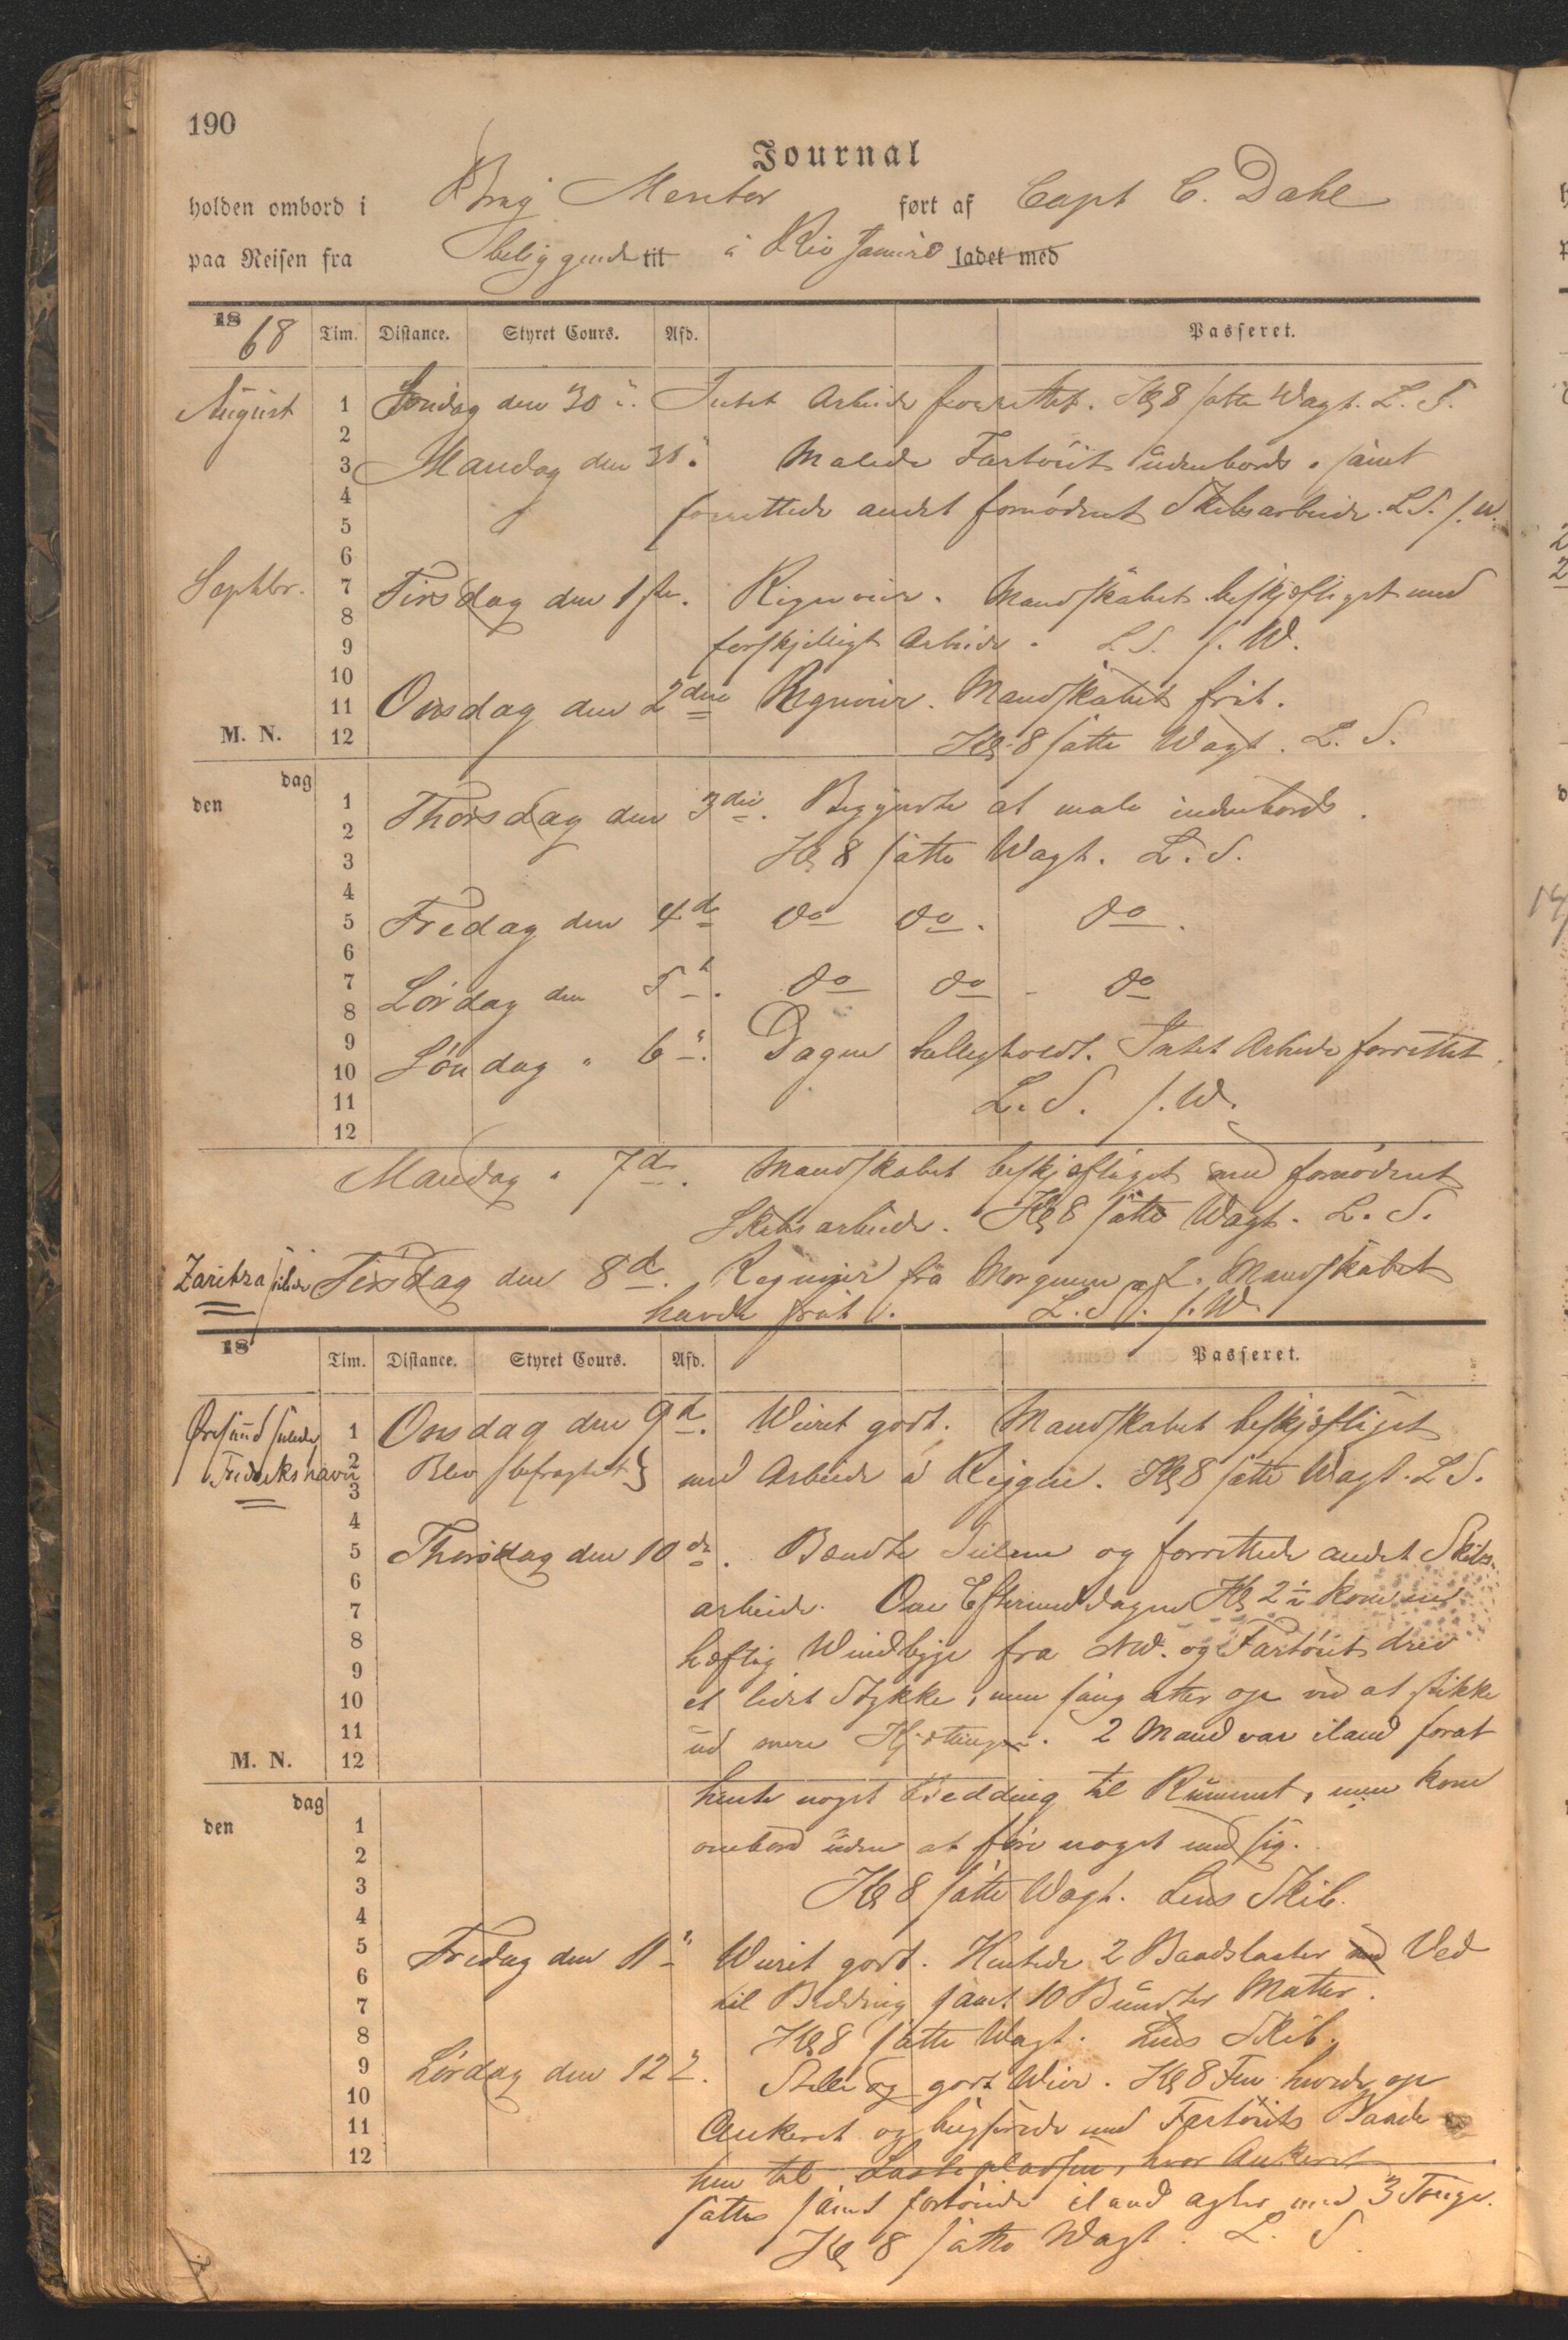 190
Journal
holden ombord i Brig Mentor ført af Capt C. Dahl
paa Reisen fra beliggende til i Rio Janeiro ladet med
1868 Tim. Distance. Styret Cours. Afd. Passeret.
August Søndag den 30te. Intet Arbeide forrettet. Kl 8 satte Wagt. L. S.
Mandag den 31. Malede Fartöiet udenbords, samt
forrettede andet fornödent Skibsarbeide. L S. s. W.
Septbr. Tirsdag den 1ste. Regnveir. Mandskabet beskjæftiget med
forskjelligt Arbeide. L. S. s. W.
Onsdag den 2den Regnveir. Mandskabet frit.
M. N. Kl. 8 satte Wagt. L. S.
dag
den
Thorsdag den 3die. Begyndte at male indenbords.
Kl 8 satte Wagt. L. S.
Fredag den 4de do do. do.
Lördag den 5t. do do - do
Söndag " 6". Dagen helligholdt. Intet Arbeide forrettet.
L. S. s. W.
Mandag " 7de. Mandskabet beskjæftiget med fornödent
Skibsarbeide. Kl 8 satte Wagt. L. S.
Zaritza Tirsdag den 8de. Regnveir fra Morgenen af. Mandskabet
havde frit. L. S. s. W.
18 Tim. Distance. Styret Cours. Afd. Passeret.
Øresund Onsdag den 9de. Weiret godt. Mandskabet beskjæftiget
Fredrikshavn Blev befragtet } med Arbeide i Riggen. Kl 8 satte Wagt. L S.
Thorsdag den 10de. Bændte Seilene og forrettede andet Skibs-
arbeide. Om Eftermiddagen Kl 2 kom en
heftig Windbyge fra NW. og Fartöiet drev
et lidet Stykke, men sang atter op ved at stikke
M. N. ud mere Kjættingen. 2 Mand var iland forat
dag
den
hente noget Bedding til Rummet, men kom
ombord uden at före noget med sig.
Kl 8 satte Wagt. Lens Skib.
Fredag den 11" Weiret godt. Hentede 2 Baadslaster med Ved
til Bedding samt 10 Bundter Matter.
Kl 8 satte Wagt. Lens Skib.
Lördag den 12". Stille og godt Weir. Kl 8 Fm. hivede op
Ankeret og bugserede med Fartöiets Baade
hen til Lastepladsen, hvor Ankeret
sattes samt fortöiede iland agter med 3 Touge.
Kl 8 satte Wagt. L. S.